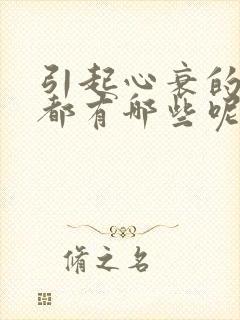 引起心衰的
都有哪些呢
脩之名